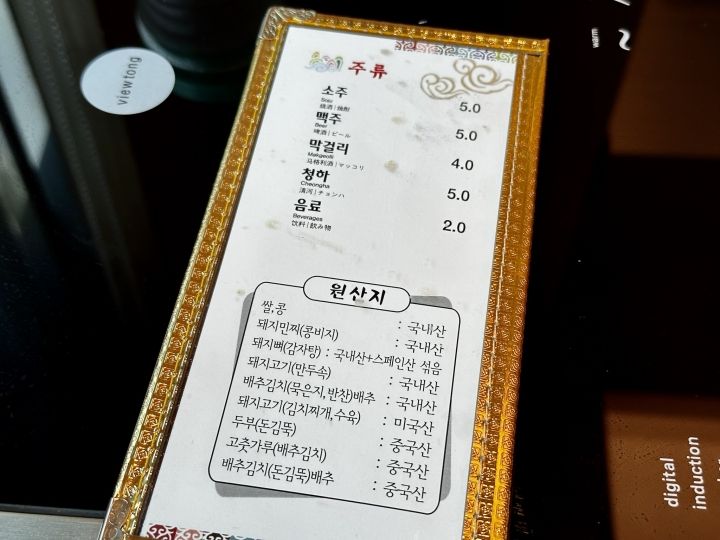 viewtong
warm
주류
소주 5.0
Soju
烧酒 | 焼酎
맥주 5.0
Beer
啤酒 | ビール
막걸리 4.0
Makgeolli
马格利酒 | マッコリ
청하 5.0
Cheongha
清河 | チョンハ
음료 2.0
Beverages
饮料 | 飲み物
원산지
쌀,콩 : 국내산
돼지민찌(콩비지) : 국내산
돼지뼈(감자탕) : 국내산+스페인산 섞음
돼지고기(만두속) : 국내산
배추김치(묵은지, 반찬)배추 : 국내산
돼지고기(김치찌개, 수육) : 미국산
두부(돈김뚝) : 중국산
고춧가루(배추김치) : 중국산
배추김치(돈김뚝)배추 : 중국산
digital
induction